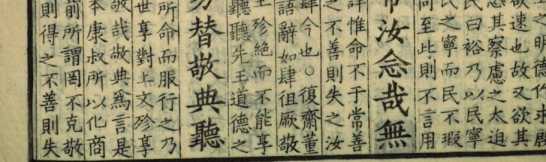 之明德作求厥
欲速也故又欲其
其察慮之太迫
民曰裕乃以民寧
民之寧而民不瑕
至此則不言用
汝念哉無
惟命不于常善
之不善則失之汝
肆今也○復齋董
語辭如肆徂厥敬
王殄絕而不能享
聽聽先王道德之
勿替敬典聽
所命而服行之乃
世享對上文殄享
敬哉敬典爲言是
本康叔所以化商
前所謂罔不克敬
則得之不善則失